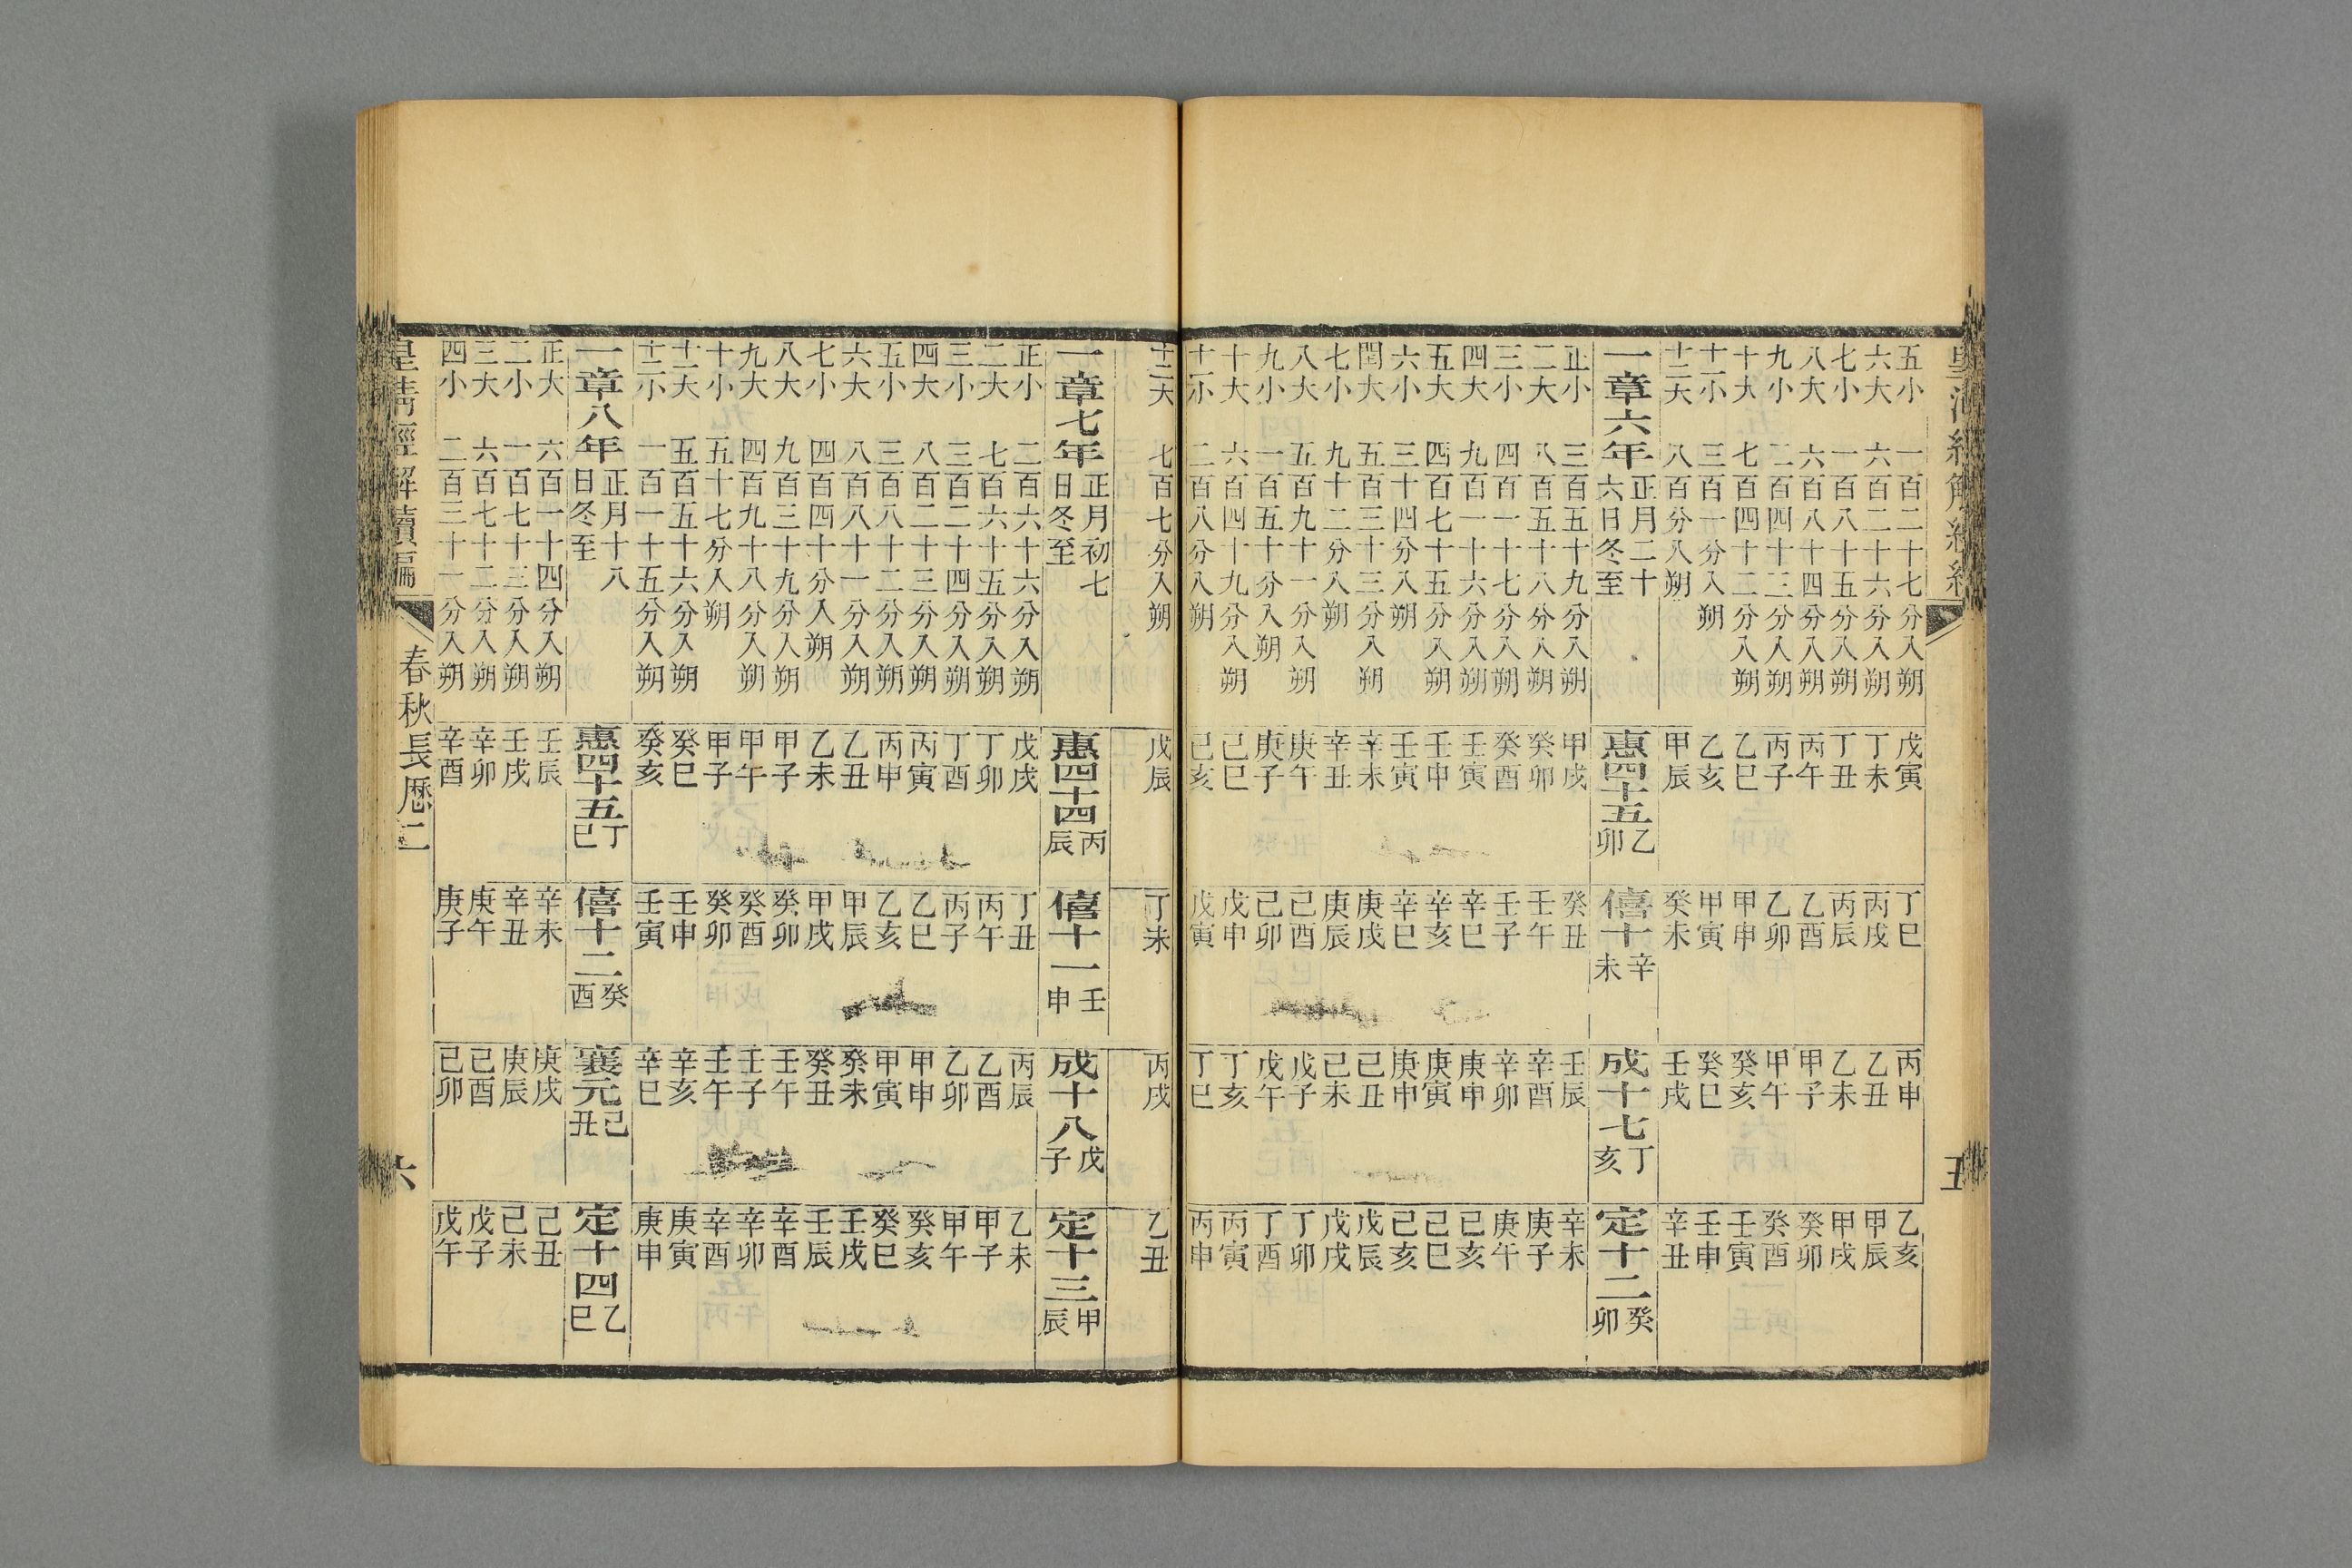 五小 一百二十七分入朔 戊寅 丁巳 丙申 乙亥
六大 六百二十六分入朔 丁未 丙戌 乙丑 甲辰
七小 一百八十五分入朔 丁丑 丙辰 乙未 甲戌
八大 六百八十四分入朔 丙午 乙酉 甲子 癸卯
九小 二百四十三分入朔 丙子 乙卯 甲午 癸酉
十大 七百四十二分入朔 乙巳 甲申 癸亥 壬寅
十一小 三百一分入朔 乙亥 甲寅 癸巳 壬申
十二大 八百分入朔 甲辰 癸未 壬戌 辛丑
一章六年 正月二十六日冬至 惠四十五 乙卯 僖十 辛未 成十七 丁亥 定十二 癸卯
正小 三百五十九分入朔 甲戌 癸丑 壬辰 辛未
二大 八百五十八分入朔 癸卯 壬午 辛酉 庚子
三小 四百一十七分入朔 癸酉 壬子 辛卯 庚午
四大 九百一十六分入朔 壬寅 辛巳 庚申 己亥
五大 四百七十五分入朔 壬申 辛亥 庚寅 己巳
六小 三十四分入朔 壬寅 辛巳 庚申 己亥
閏大 五百三十三分入朔 辛未 庚戌 己丑 戊辰
七小 九十二分入朔 辛丑 庚辰 己未 戊戌
八大 五百九十一分入朔 庚午 己酉 戊子 丁卯
九小 一百五十分入朔 庚子 己卯 戊午 丁酉
十大 六百四十九分入朔 己巳 戊申 丁亥 丙寅
十一小 二百八分入朔 己亥 戊寅 丁巳 丙申
十二大 七百七分入朔 戊辰 丁未 丙戌 乙丑
一章七年 正月初七日冬至 惠四十四 丙辰 僖十一 壬申 成十八 戊子 定十三 甲辰
正小 二百六十六分入朔 戊戌 丁丑 丙辰 乙未
二大 七百六十五分入朔 丁卯 丙午 乙酉 甲子
三小 三百二十四分入朔 丁酉 丙子 乙卯 甲午
四大 八百二十三分入朔 丙寅 乙巳 甲申 癸亥
五小 三百八十二分入朔 丙申 乙亥 甲寅 癸巳
六大 八百八十一分入朔 乙丑 甲辰 癸未 壬戌
七小 四百四十分入朔 乙未 甲戌 癸丑 壬辰
八大 九百三十九分入朔 甲子 癸卯 壬午 辛酉
九大 四百九十八分入朔 甲午 癸酉 壬子 辛卯
十小 五十七分入朔 甲子 癸卯 壬午 辛酉
十一大 五百五十六分入朔 癸巳 壬申 辛亥 庚寅
十二小 一百一十五分入朔 癸亥 壬寅 辛巳 庚申
一章八年 正月十八日冬至 惠四十五 丁巳 僖十二 癸酉 襄元 己丑 定十四 乙巳
正大 六百一十四分入朔 壬辰 辛未 庚戌 己丑
二小 一百七十三分入朔 壬戌 辛丑 庚辰 己未
三大 六百七十二分入朔 辛卯 庚午 己酉 戊子
四小 二百三十一分入朔 辛酉 庚子 己卯 戊午
皇清經解續編 春秋長厤二 六